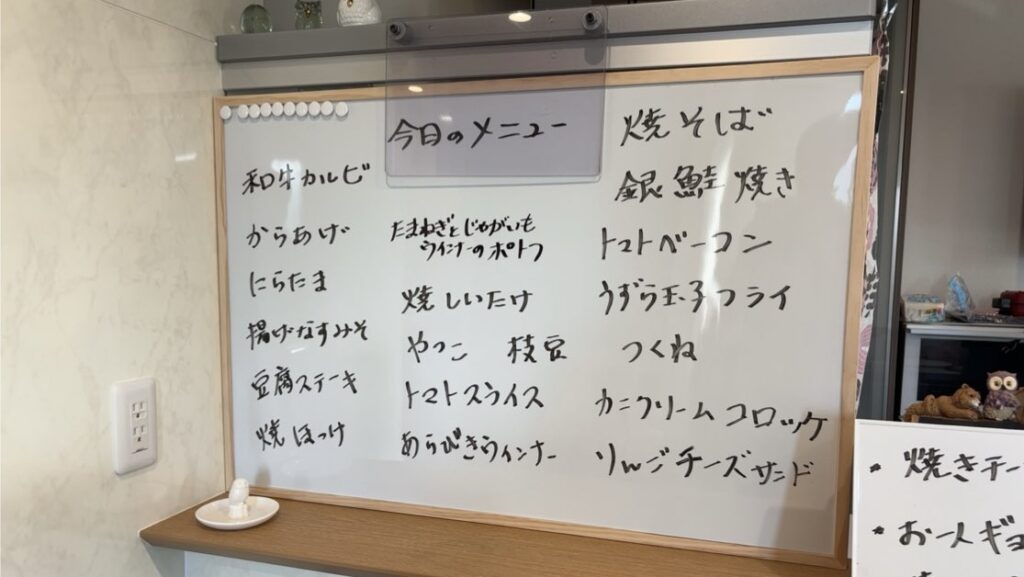 今日のメニュー
和牛カルビ
からあげ
にらたま
揚げなすみそ
豆腐ステーキ
焼ほっけ
たまねぎとじゃがいも
ウインナーのポトフ
焼しいたけ
やっこ 枝豆
トマトスライス
あらびきウインナー
焼そば
銀鮭焼き
トマトベーコン
うずら玉子フライ
つくね
カニクリームコロッケ
りんごチーズサンド
・焼きテー
・お一人ギョ